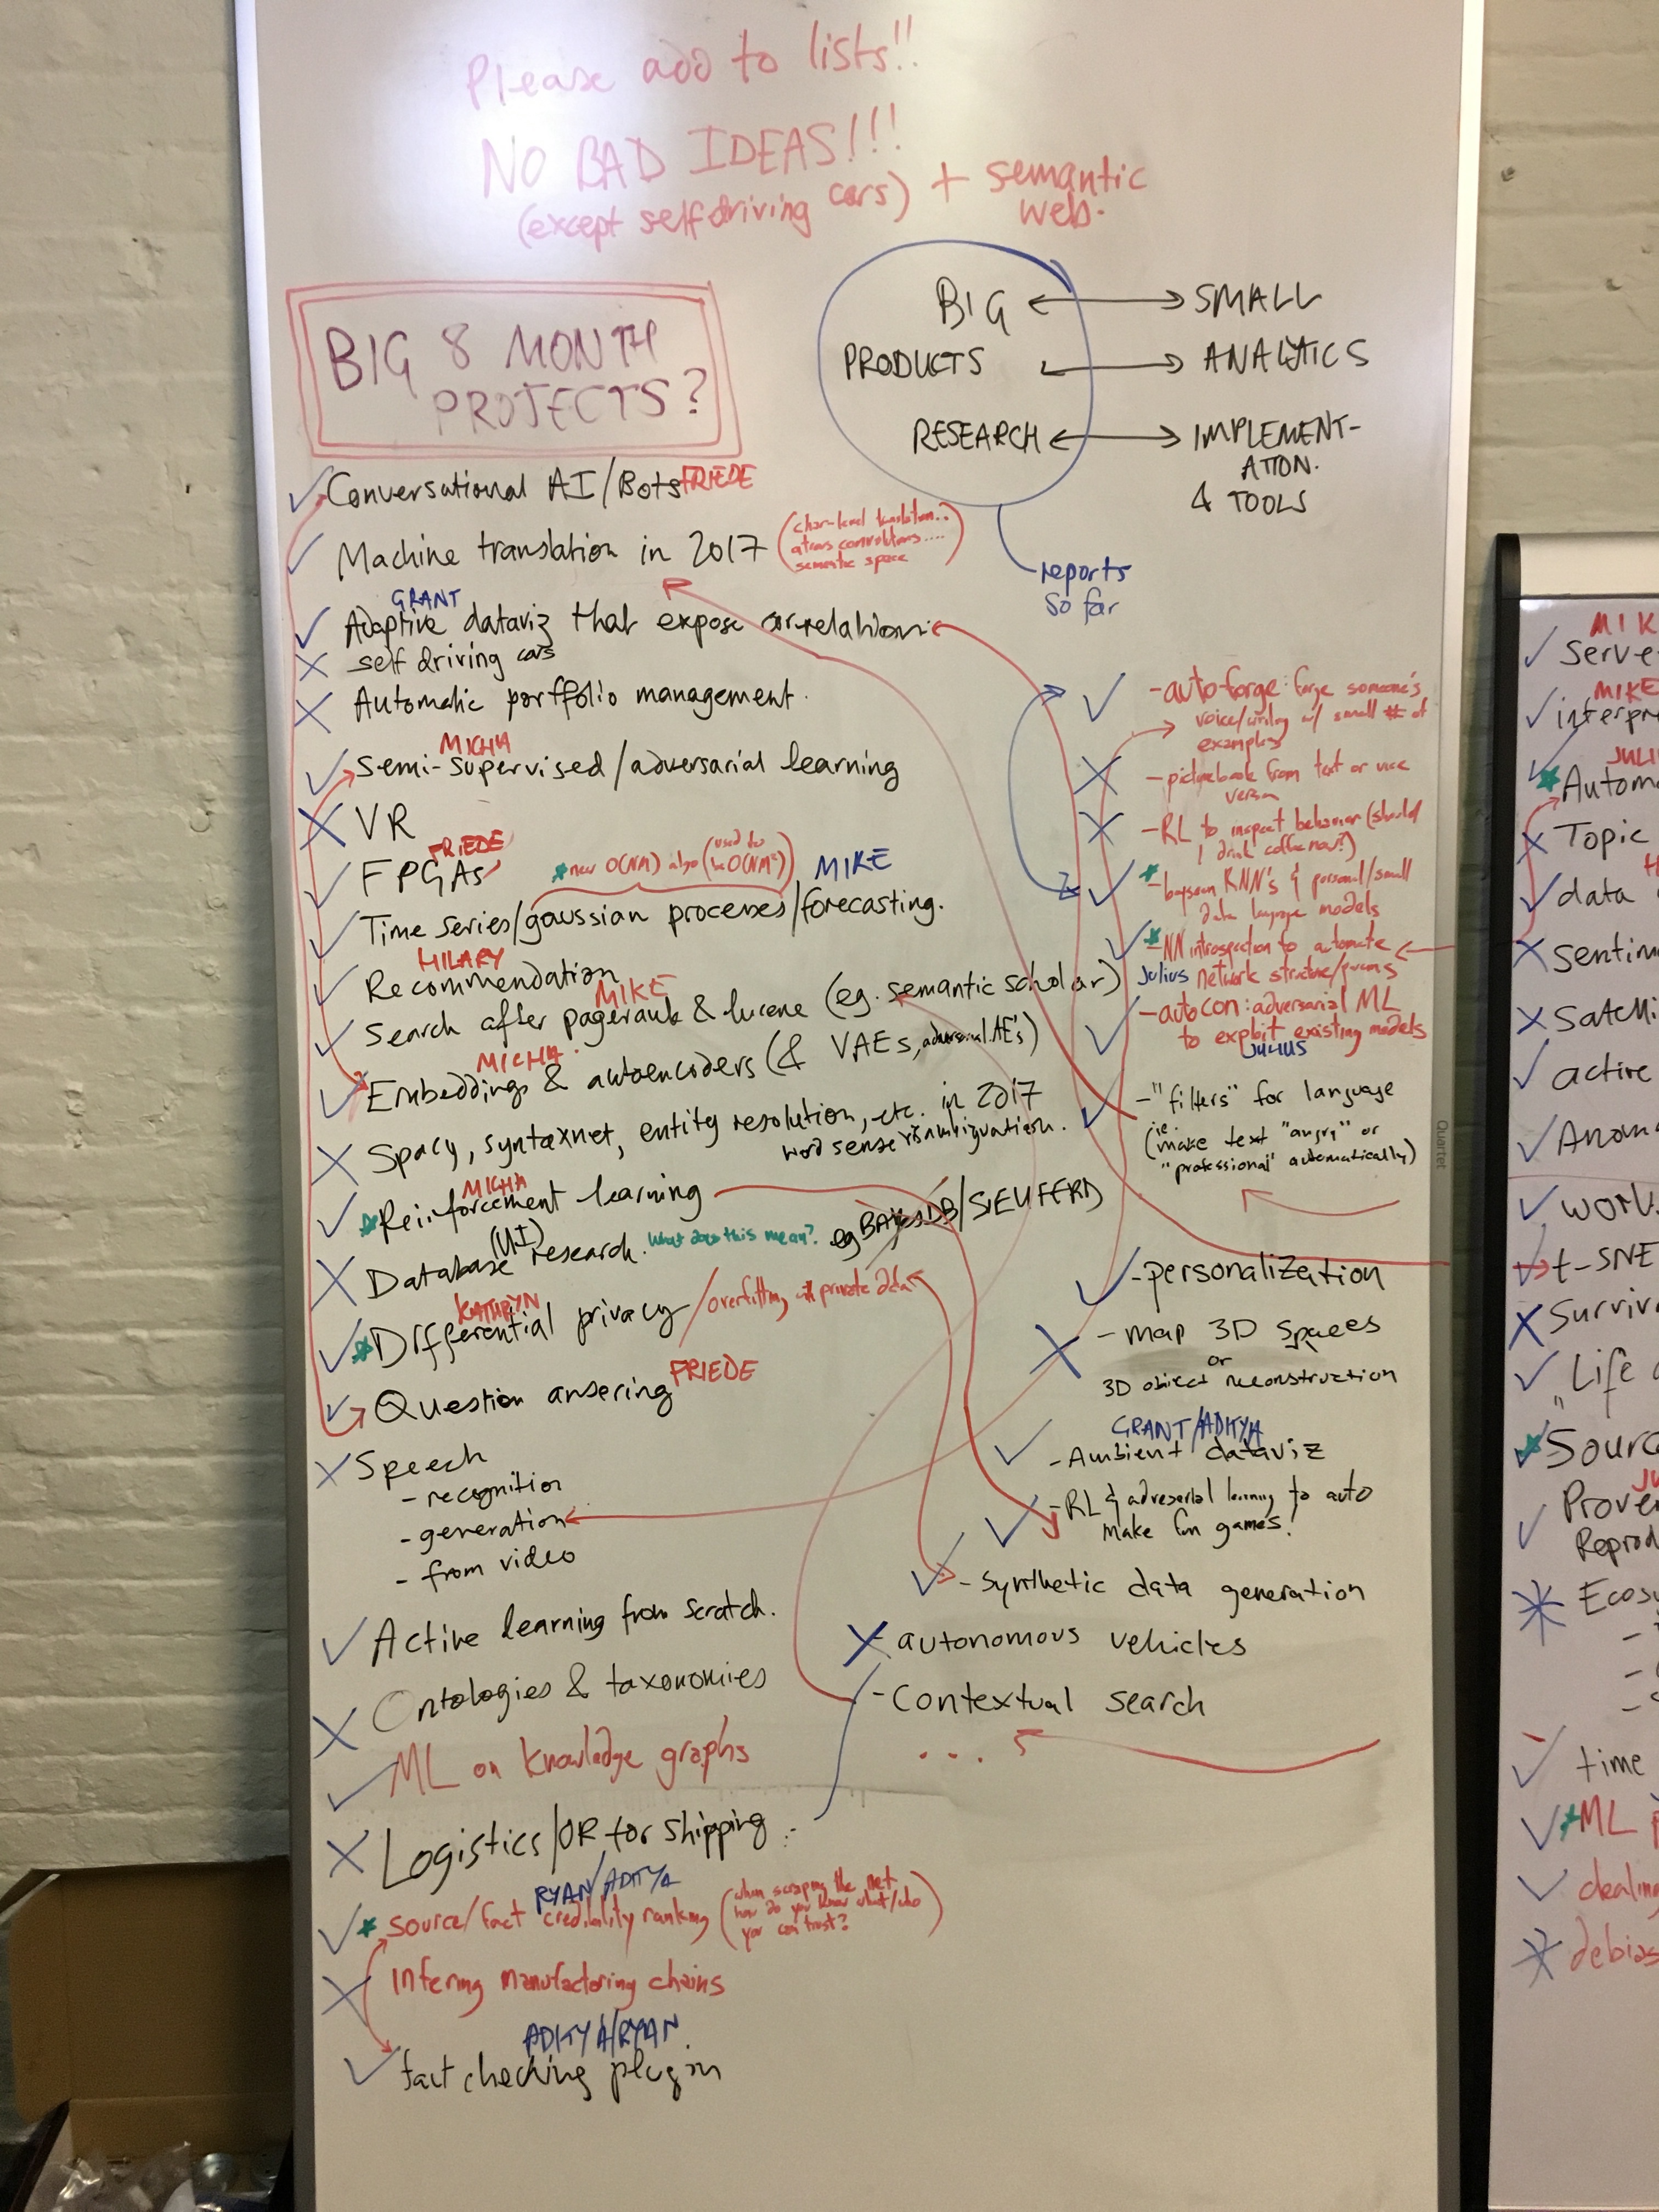 Please add to lists!!
NO BAD IDEAS!!!
(except self driving cars) + semantic
web.
BIG 8 MONTH
PROJECTS?
BIG SMALL
PRODUCTS ANALYTICS
RESEARCH IMPLEMENT-
ATION.
& TOOLS
reports
so far
Conversational AI/Bots FRIEDE
Machine translation in 2017
(char-level translation..
semantic space
GRANT
Adaptive dataviz that expose correlation
self driving cars
Automatic portfolio management.
MICHA
Semi-supervised/adversarial learning
VR
FRIEDE
FPGAs
new O(NM) algo (used to
be O(NM²))
MIKE
Time series/gaussian processes/forecasting.
HILARY
Recommendation
MIKE
Search after pagerank & lucene (eg. semantic scholar)
MICHA
Embeddings & autoencoders (& VAEs, adversarial AE's)
Spacy, syntaxnet, entity resolution, etc. in 2017
word sense disambiguation.
MICHA
Reinforcement learning
(UI)
Database research. What does this mean? eg BAyesDB/SIEUFERD
KATHRYN
Differential privacy/overfitting w/ private data
Question ansering FRIEDE
Speech
- recognition
- generation
- from video
Active learning from scratch.
Ontologies & taxonomies
ML on knowledge graphs
Logistics/OR for shipping
RYAN/ADITYA
source/fact credibility ranking
(when scraping the net
how do you know what/who
you can trust?)
Infering manufactoring chains
ADITYA/RYAN
fact checking plugin
- auto-forge: forge someone's
voice/writing w/ small # of
examples
- picturebook from text or vice
versa
- RL to inspect behavior (should
I drink coffee now?)
- baysean RNN's & personal/small
data language models
- NN introspection to automate
Julius network structure/params
- autocon: adversarial ML
to exploit existing models
JULIUS
- "filters" for language
(ie.
make text "angry" or
"professional" automatically)
- personalization
- map 3D spaces
or
3D object reconstruction
GRANT/ADITYA
- Ambient dataviz
- RL & adveserial learning to auto
make fun games!
- synthetic data generation
- autonomous vehicles
- Contextual search
...
Quartet
MIK
Serve
MIKE
interpr
JULI
Autom
Topic
data
Sentim
Satelli
active
Anom
work
t-SNE
Surviv
"Life
Sourc
JU
Prove
Reprod
Ecosy
time
ML p
dealing
debias